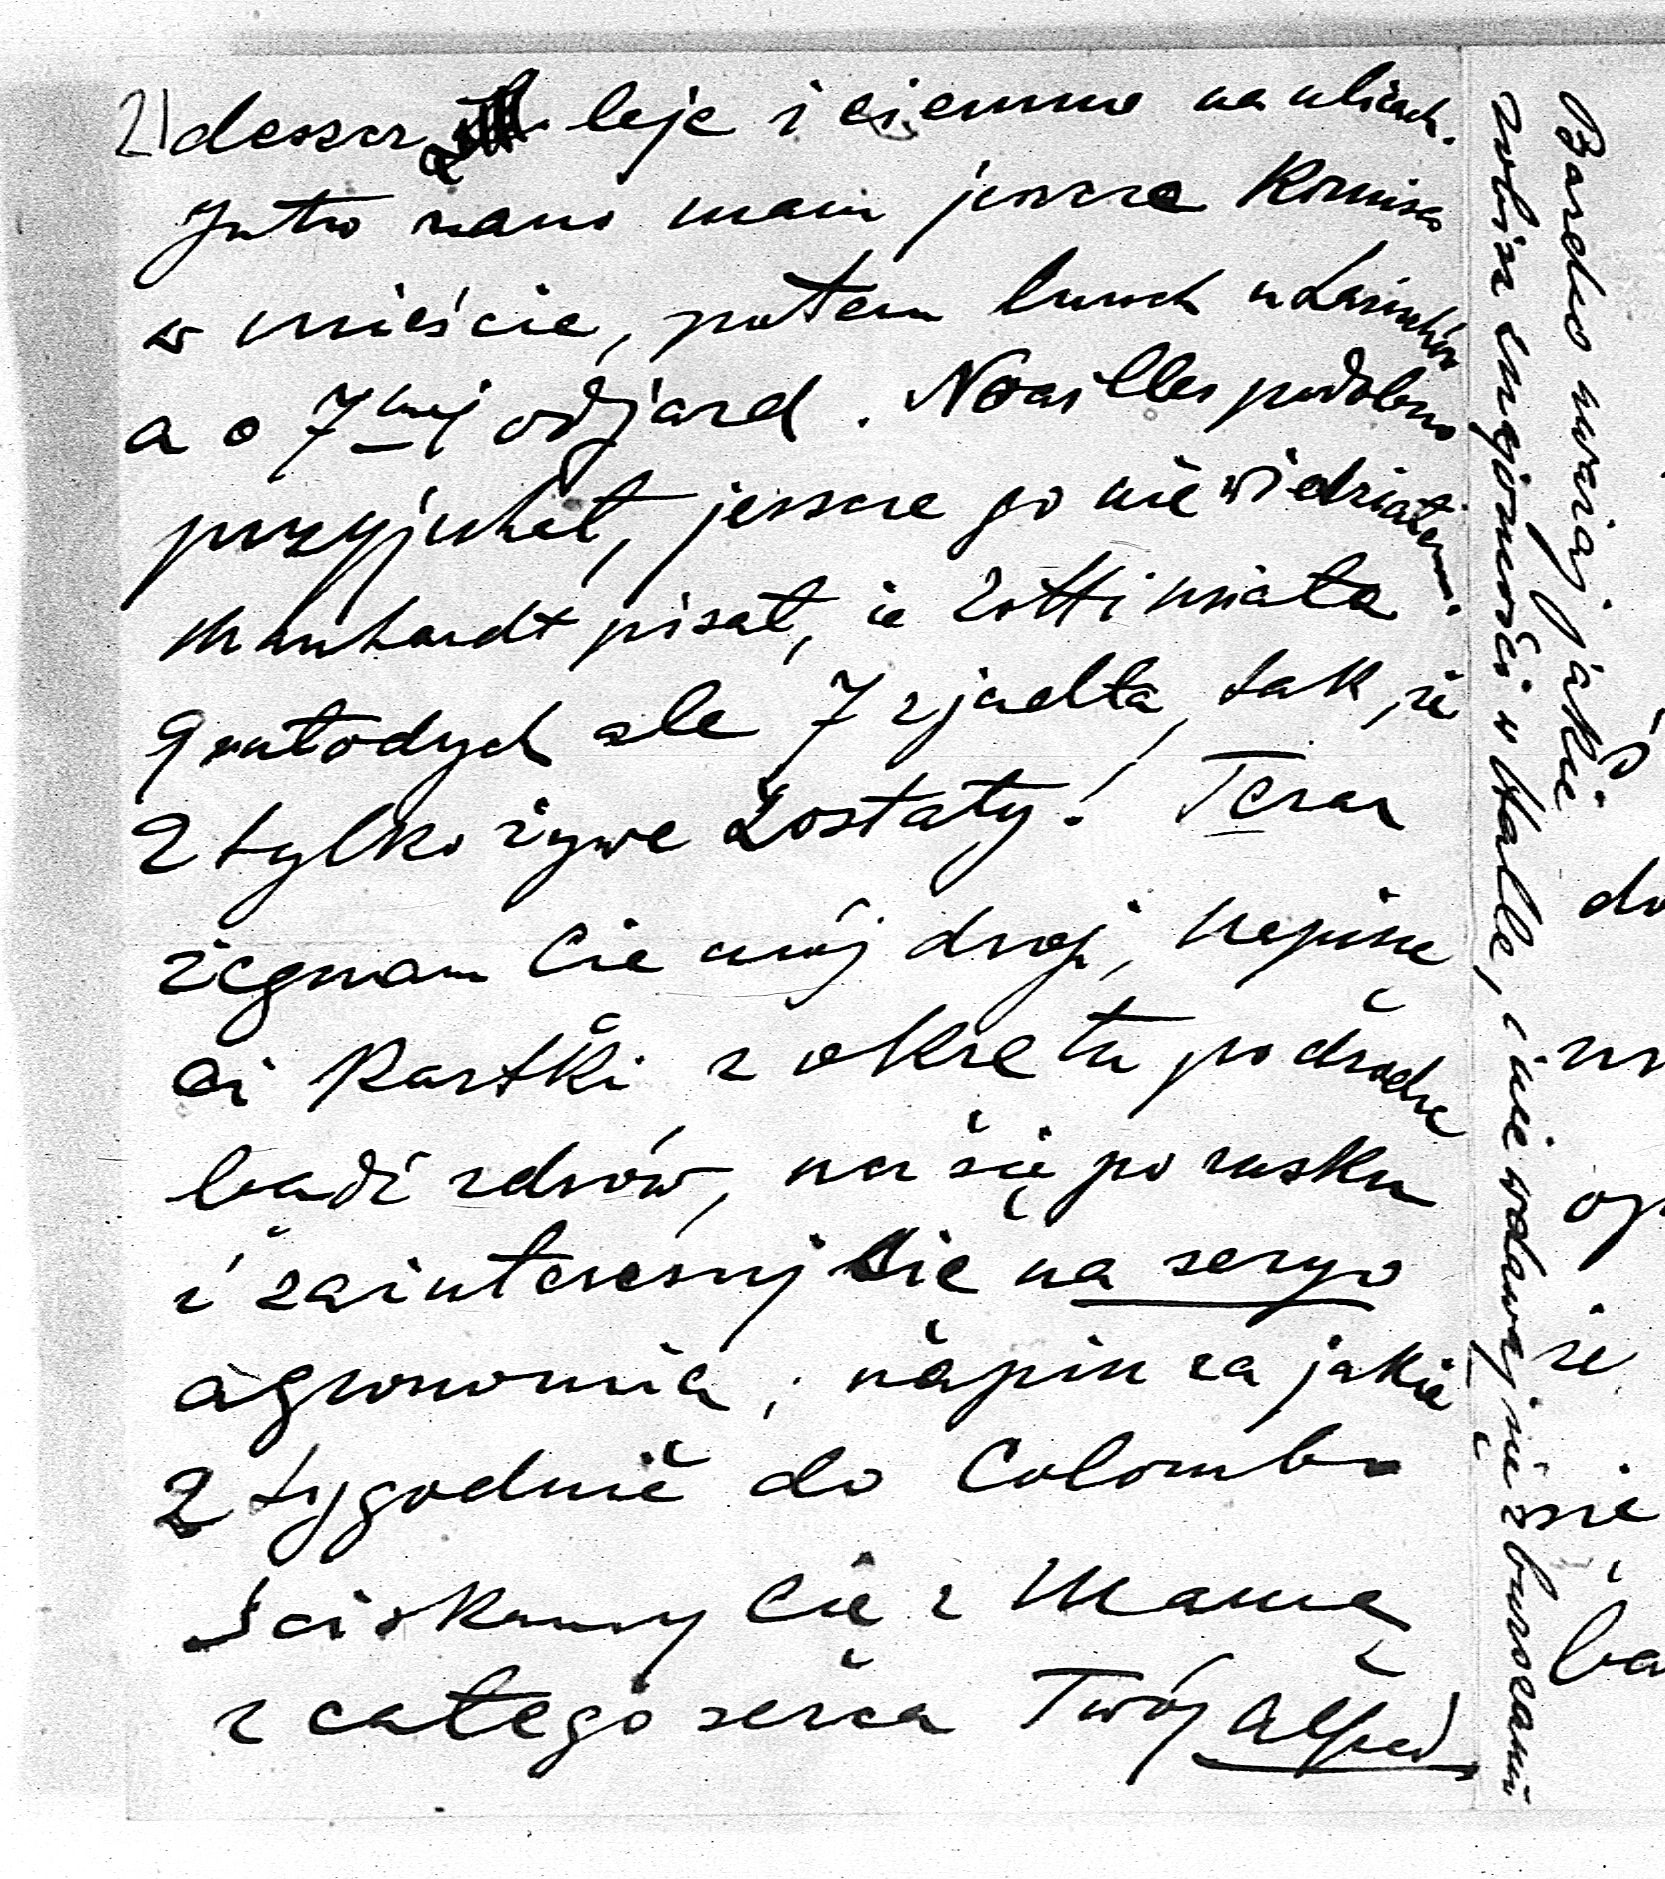 2) deszcz leje i ciemno na ulicach.
Jutro rano mam jeszcze Komisao
w mieście, potem lunch u
a o 7mej odjazd. Noailles podobno
przyjechał, jeszcze go nie widziałem.
Manhardt pisał, że Lotti miała
9 młodych ale 7 zjadła, tak że
2 tylko żywe zostały! Teraz
żegnam Cię mój drogi, napiszę
Ci kartki z okrętu po drodze
bądź zdrów, ucz się po rusku
i zainteresuj się na seryo
agronomią, napisz za jakie
2 tygodnie do Colombo
Ściskamy Cię z Mamą
z całego serca Twój Alfred
Bardzo uważaj jakie
zrobisz znajomości w Halle, i nie wdawaj się z burszami
do
że
nie